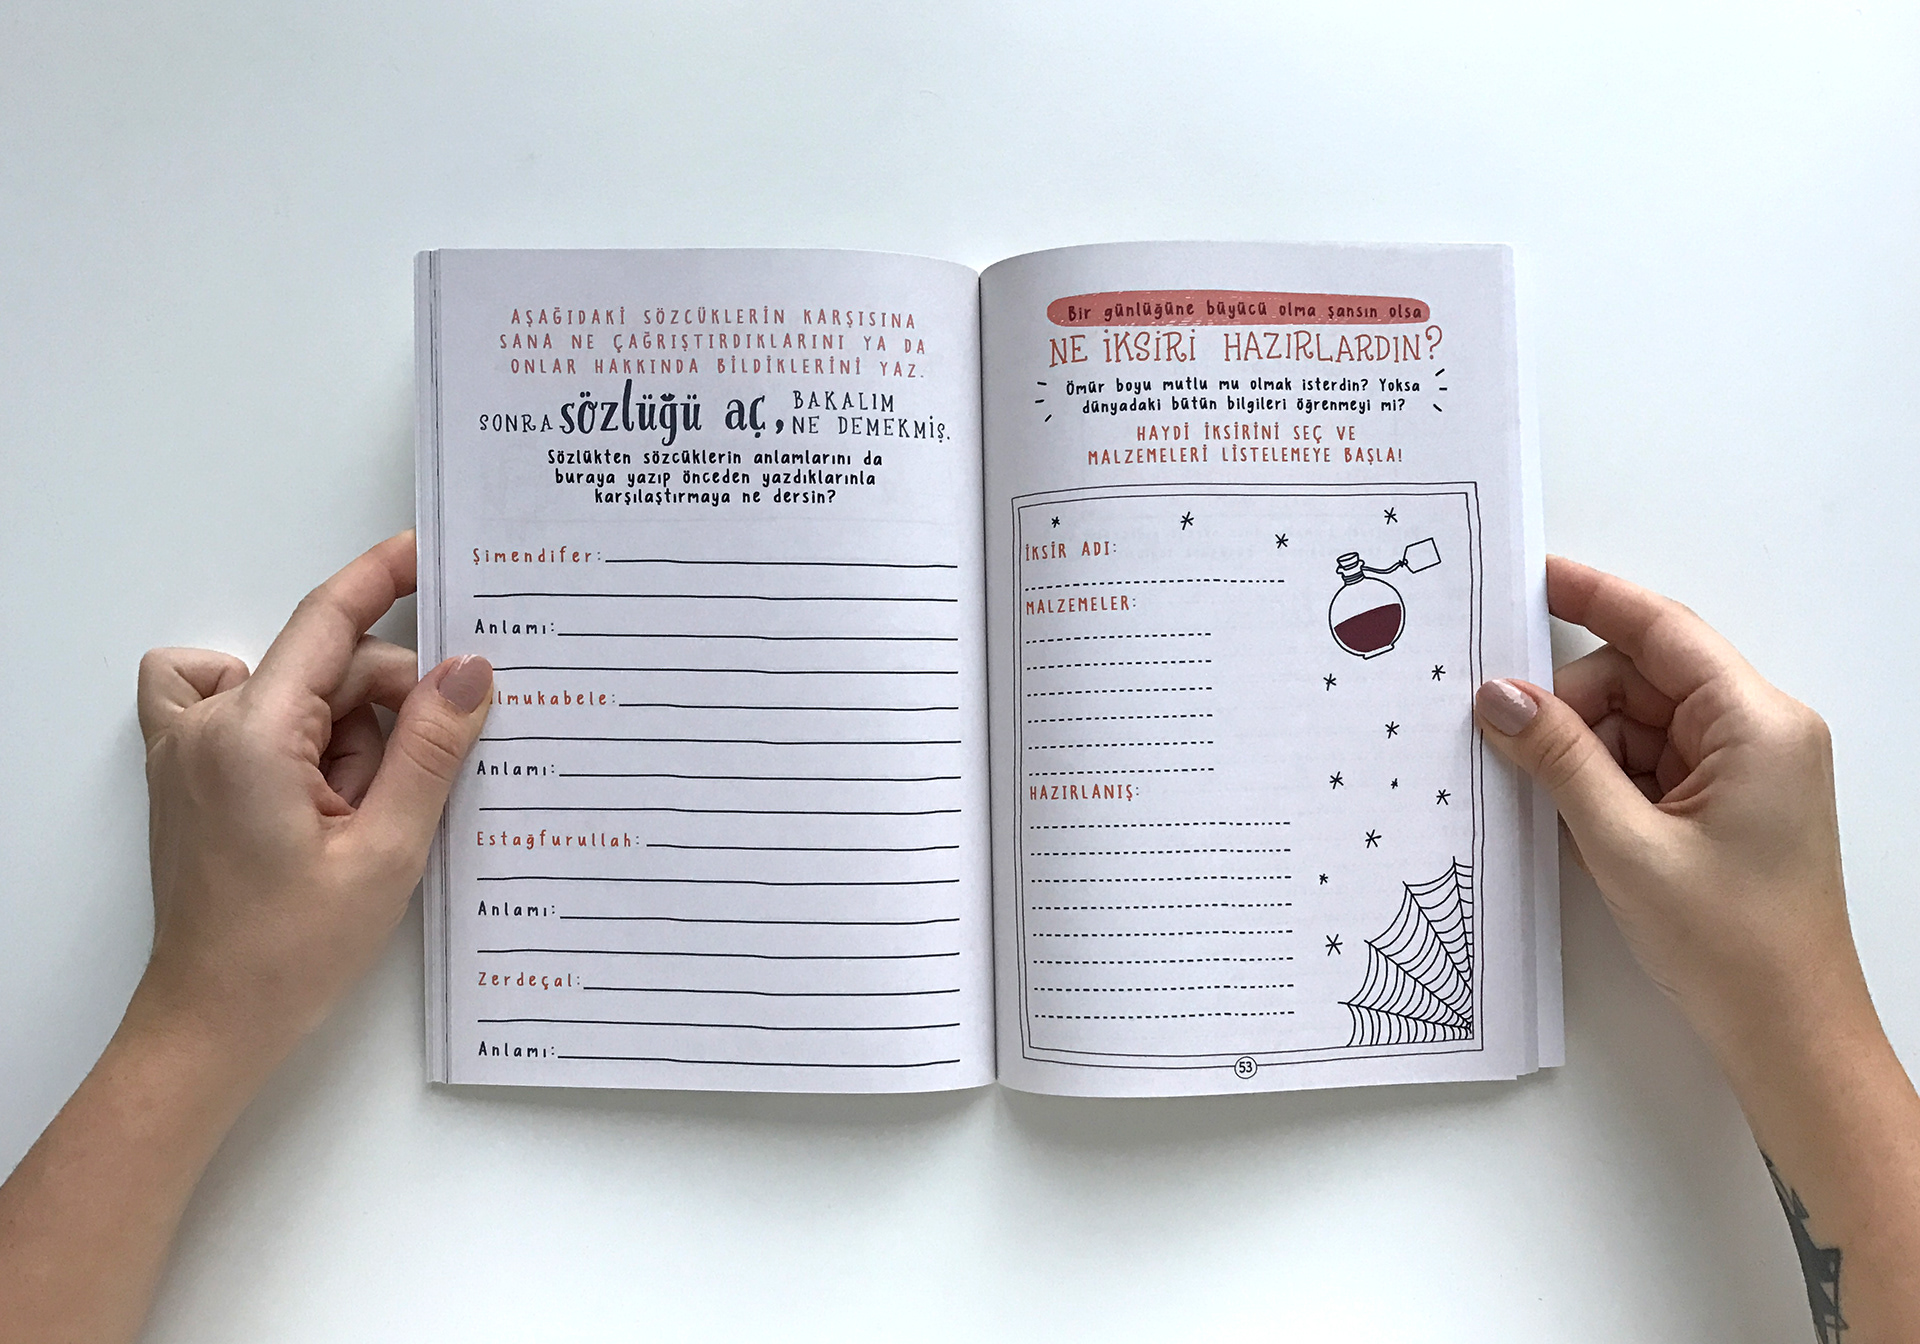 AŞAĞIDAKİ SÖZCÜKLERİN KARŞISINA
SANA NE ÇAĞRIŞTIRDIKLARINI YA DA
ONLAR HAKKINDA BİLDİKLERİNİ YAZ.
SONRA sözlüğü aç, BAKALIM
NE DEMEKMİŞ.
Sözlükten sözcüklerin anlamlarını da
buraya yazıp önceden yazdıklarınla
karşılaştırmaya ne dersin?
Şimendifer:
Anlamı:
Anlamı:
Estağfurullah:
Anlamı:
Zerdeçal:
Anlamı:
Bir günlüğüne büyücü olma şansın olsa
NE İKSİRİ HAZIRLARDIN?
Ömür boyu mutlu mu olmak isterdin? Yoksa
dünyadaki bütün bilgileri öğrenmeyi mi?
HAYDİ İKSİRİNİ SEÇ VE
MALZEMELERİ LİSTELEMEYE BAŞLA!
İKSİR ADI:
MALZEMELER:
HAZIRLANIŞ:
53